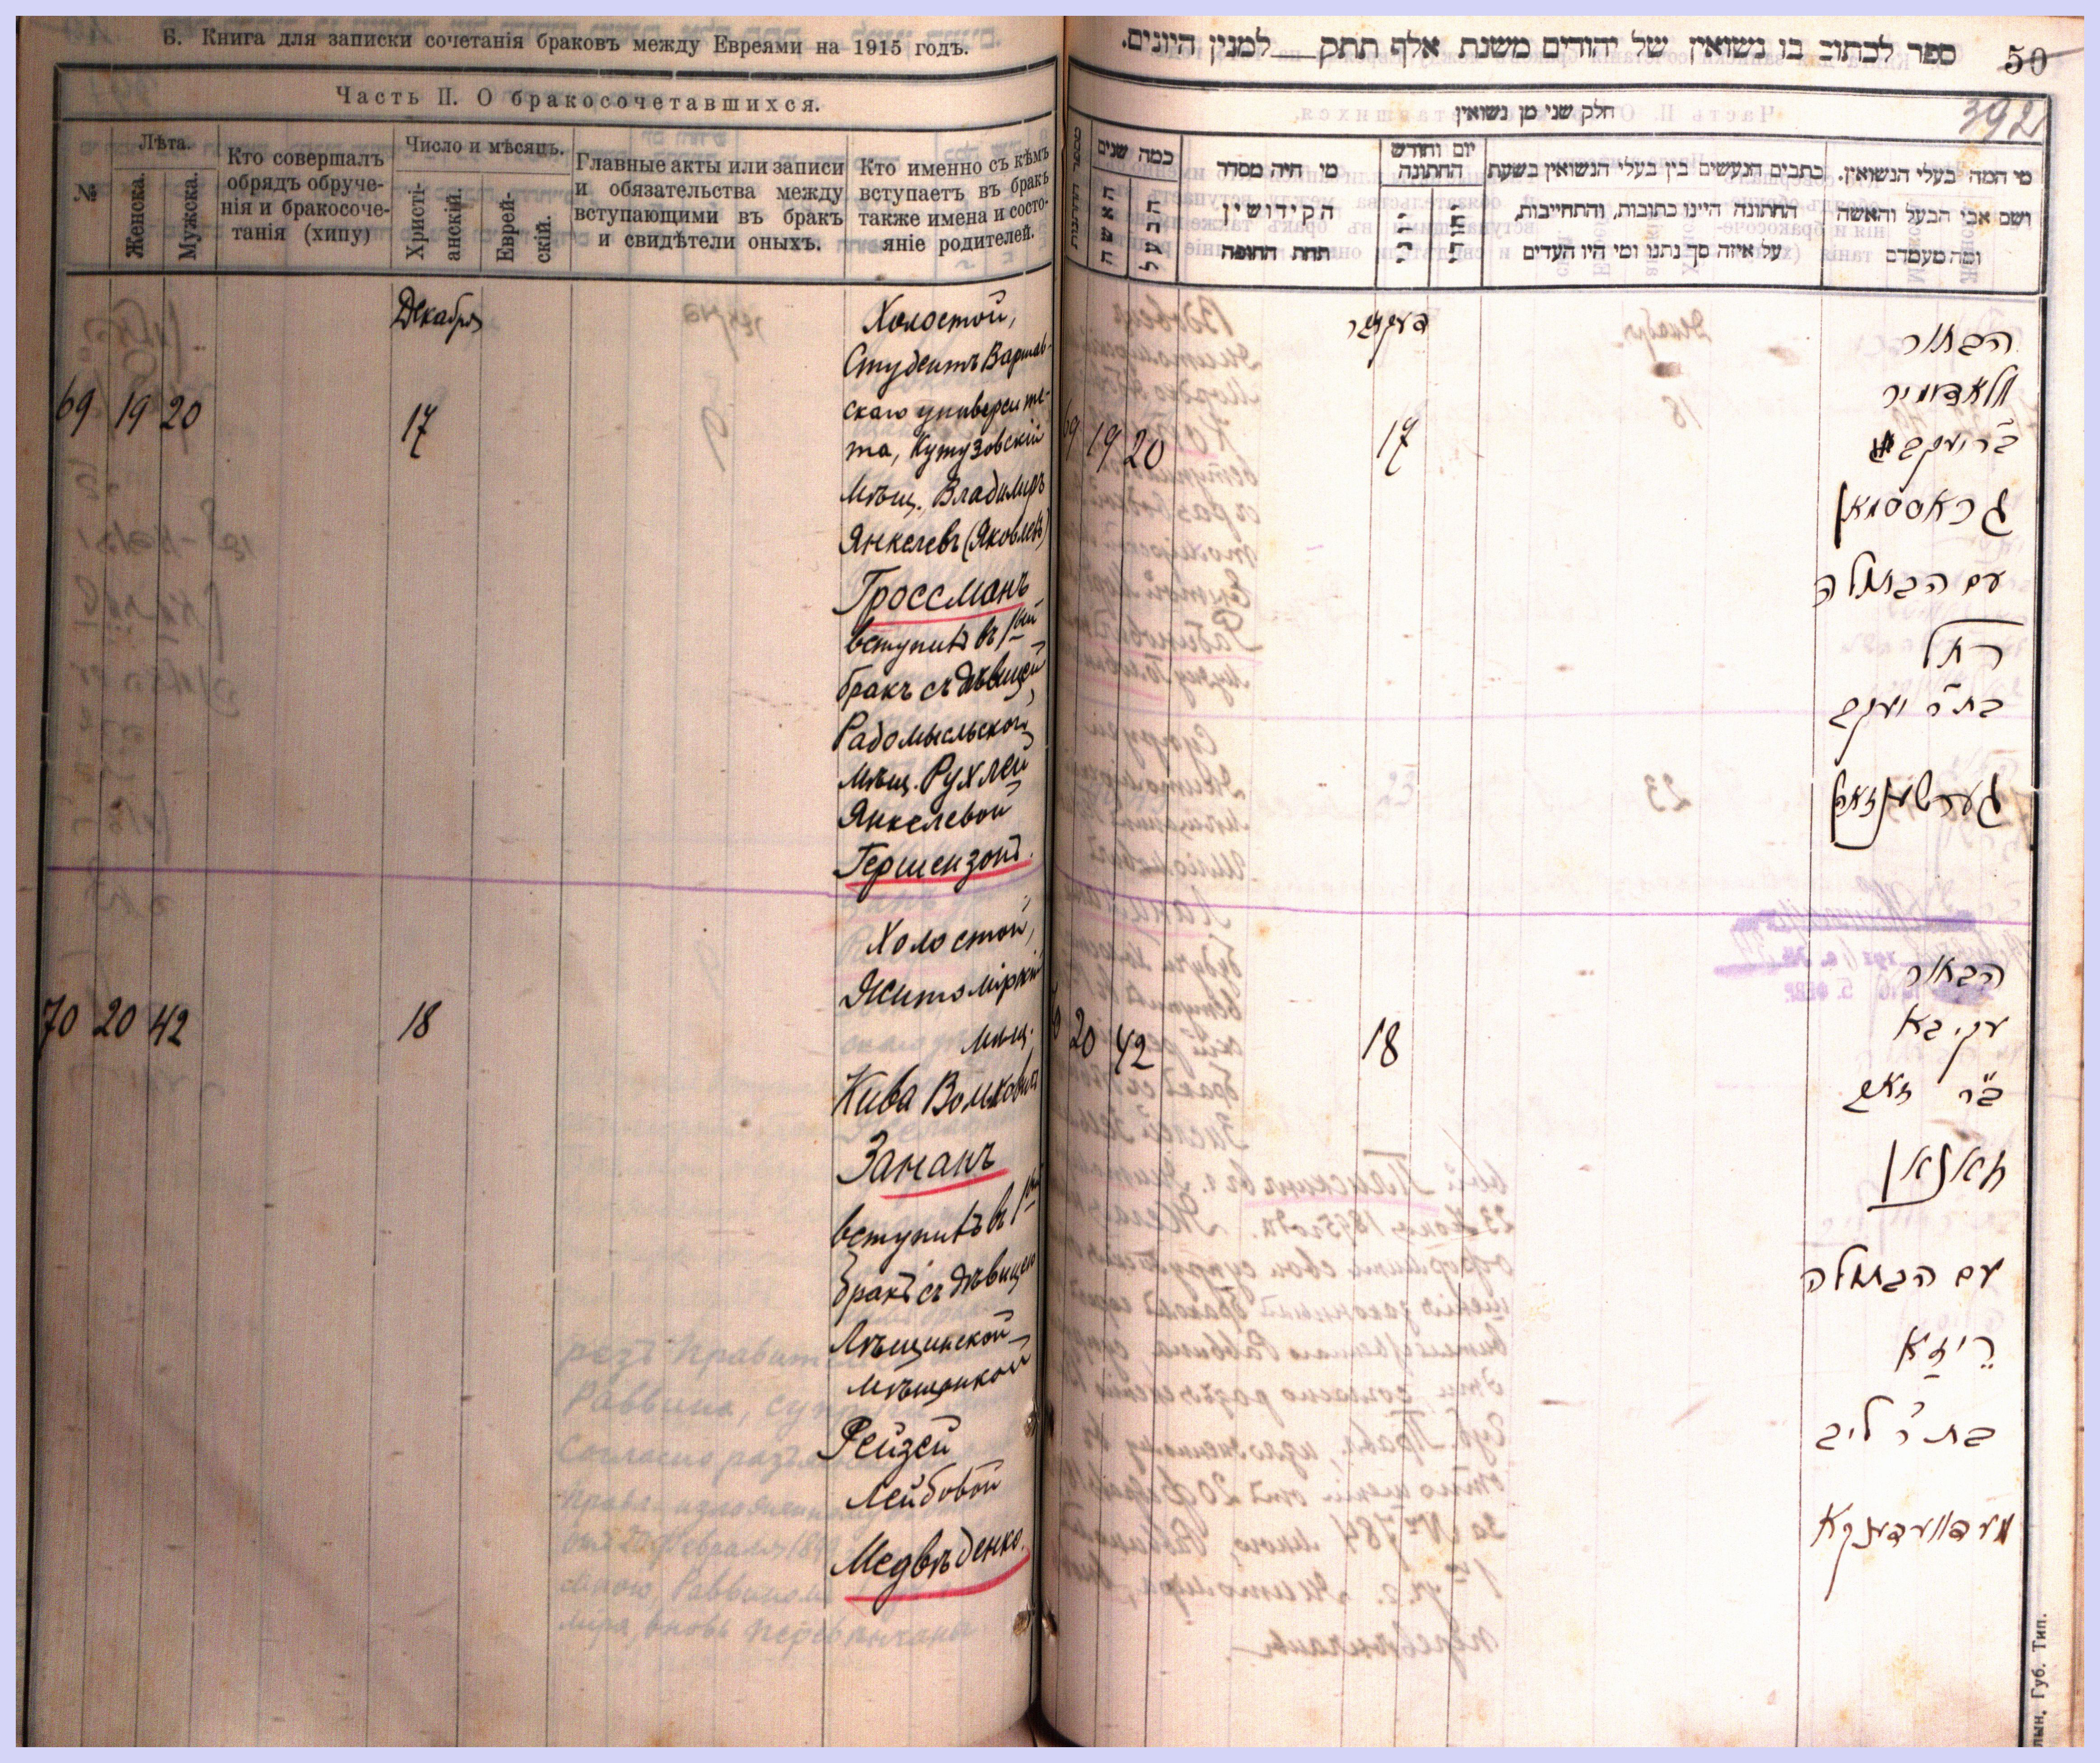 Б. Книга для записки сочетанія браковъ между Евреями на 1915 годъ.
Часть II. О бракосочетавшихся.
№
Лѣта.
Женска.
Мужска.
Кто совершалъ
обрядъ обруче-
нія и бракосоче-
танія (хипу)
Число и мѣсяцъ.
Христі-
анскій.
Еврей-
скій.
Главные акты или записи
и обязательства между
вступающими въ бракъ
и свидѣтели оныхъ.
Кто именно съ кѣмъ
вступаетъ въ бракъ
также имена и состо-
яніе родителей.
Декабря
69 19 20 17
Холостой,
Студентъ Варшав-
скаго университе-
та, Кутузовскій
Мѣщ. Владимиръ
Янкелевъ (Яковлевъ)
Гроссманъ
вступилъ въ 1ый
бракъ съ дѣвицей
Радомысльской
мѣщ. Рухлей
Янкелевой
Гершензонъ.
70 20 42 18
Холостой,
Житомірскій
мѣщ.
Кива Волковичъ
Заманъ
вступилъ въ 1ый
бракъ съ дѣвицею
мѣщанкой
Рейзей
Лейбовой
Медвѣденко.
ספר לכתוב בו נשואין של יהודים משנת אלף תתק למנין היונים.
50
392
חלק שני מן נשואין
כמה שנים
האשה
הבעל
מי היה מסדר
הקידושין
תחת החופה
יום וחודש
החתונה
כתבים הנעשים בין בעלי הנשואין בשעת
החתונה היינו כתובות, והתחייבות,
על איזה סך נתנו ומי היו העדים
מי המה בעלי הנשואין.
ושם אבי הבעל והאשה
ומה מעמדם
דעקאבר
69 19 20 17
הבחור
וולאדימיר
ב״ר יעקב
גראססמאן
עם הבתולה
רחל
בת ר׳ יעקב
גערשענזאהן
20 42 18
הבחור
עקיבא
ב״ר זאב
זאמאן
עם הבתולה
רייזא
בת ר׳ ליב
מעדוועדענקא
Губ. Тип.